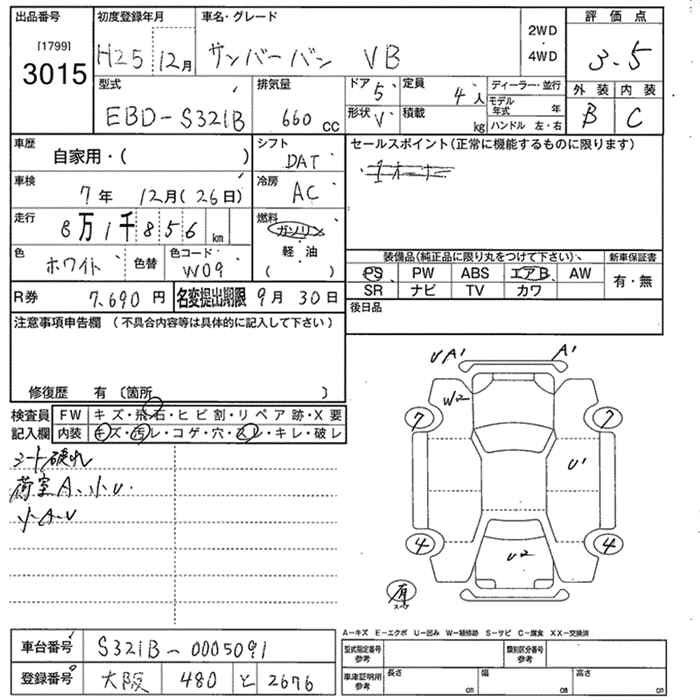 出品番号 初度登録年月 車名・グレード 評価点
[1799] 3015 H25 12月 サンバーバン VB 2WD・4WD 3.5
型式 排気量 ドア 5 定員 4人 ディーラー・並行 外装 内装
EBD-S321B 660cc 形状 V 積載 kg モデル年式 年 B C
ハンドル 左・右
車歴 自家用・( ) シフト DAT セールスポイント(正常に機能するものに限ります)
車検 7年 12月(26日) 冷房 AC
走行 8万1千856km 燃料 ガソリン・軽油 ( )
色 ホワイト 色替 色コード W09 装備品(純正品に限り丸をつけて下さい) 新車保証書
PS PW ABS エアB AW 有・無
SR ナビ TV カワ
R券 7,690円 名変提出期限 9月30日 後日品
注意事項申告欄(不具合内容等は具体的に記入して下さい)
修復歴 有〔箇所 〕
検査員 FW キズ・飛石・ヒビ割・リペア跡・X要
記入欄 内装 キズ・汚レ・コゲ・穴・スレ・キレ・破レ
シート破れ
荷室A.小U.
小A.U
UA' A'
W2
7 7
U'
4 4
U2
有
A−キズ E−エクボ U−凹み W−補修跡 S−サビ C−腐食 XX−交換済
車台番号 S321B-0005091 型式指定番号 参考 類別区分番号 参考
登録番号 大阪 480 と 2676 車庫証明用 参考 長さ cm 幅 cm 高さ cm